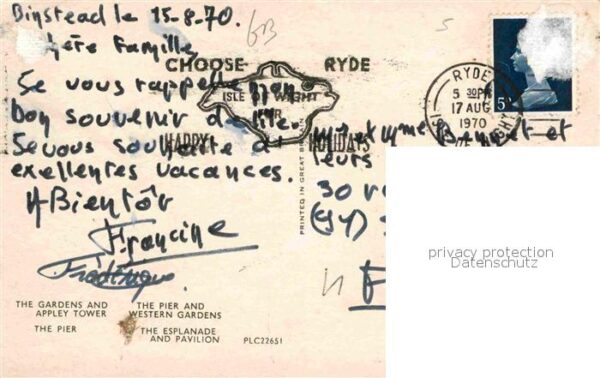 Binstead le 15-8-70.
Chère Famille,
Je vous rappelle mon
bon souvenir de l'île.
Je vous souhaite d'
exellentes vacances.
A Bientôt
Francine
Frédérique
GB
5
CHOOSE RYDE
ISLE OF WIGHT
FOR
HAPPY HOLIDAYS
RYDE
5 30PM
17 AUG
1970
ISLE OF WIGHT
5
PRINTED IN GREAT BRITAIN
et Mme et
leurs
30
privacy protection
Datenschutz
THE GARDENS AND
APPLEY TOWER
THE PIER AND
WESTERN GARDENS
THE PIER
THE ESPLANADE
AND PAVILION
PLC22651